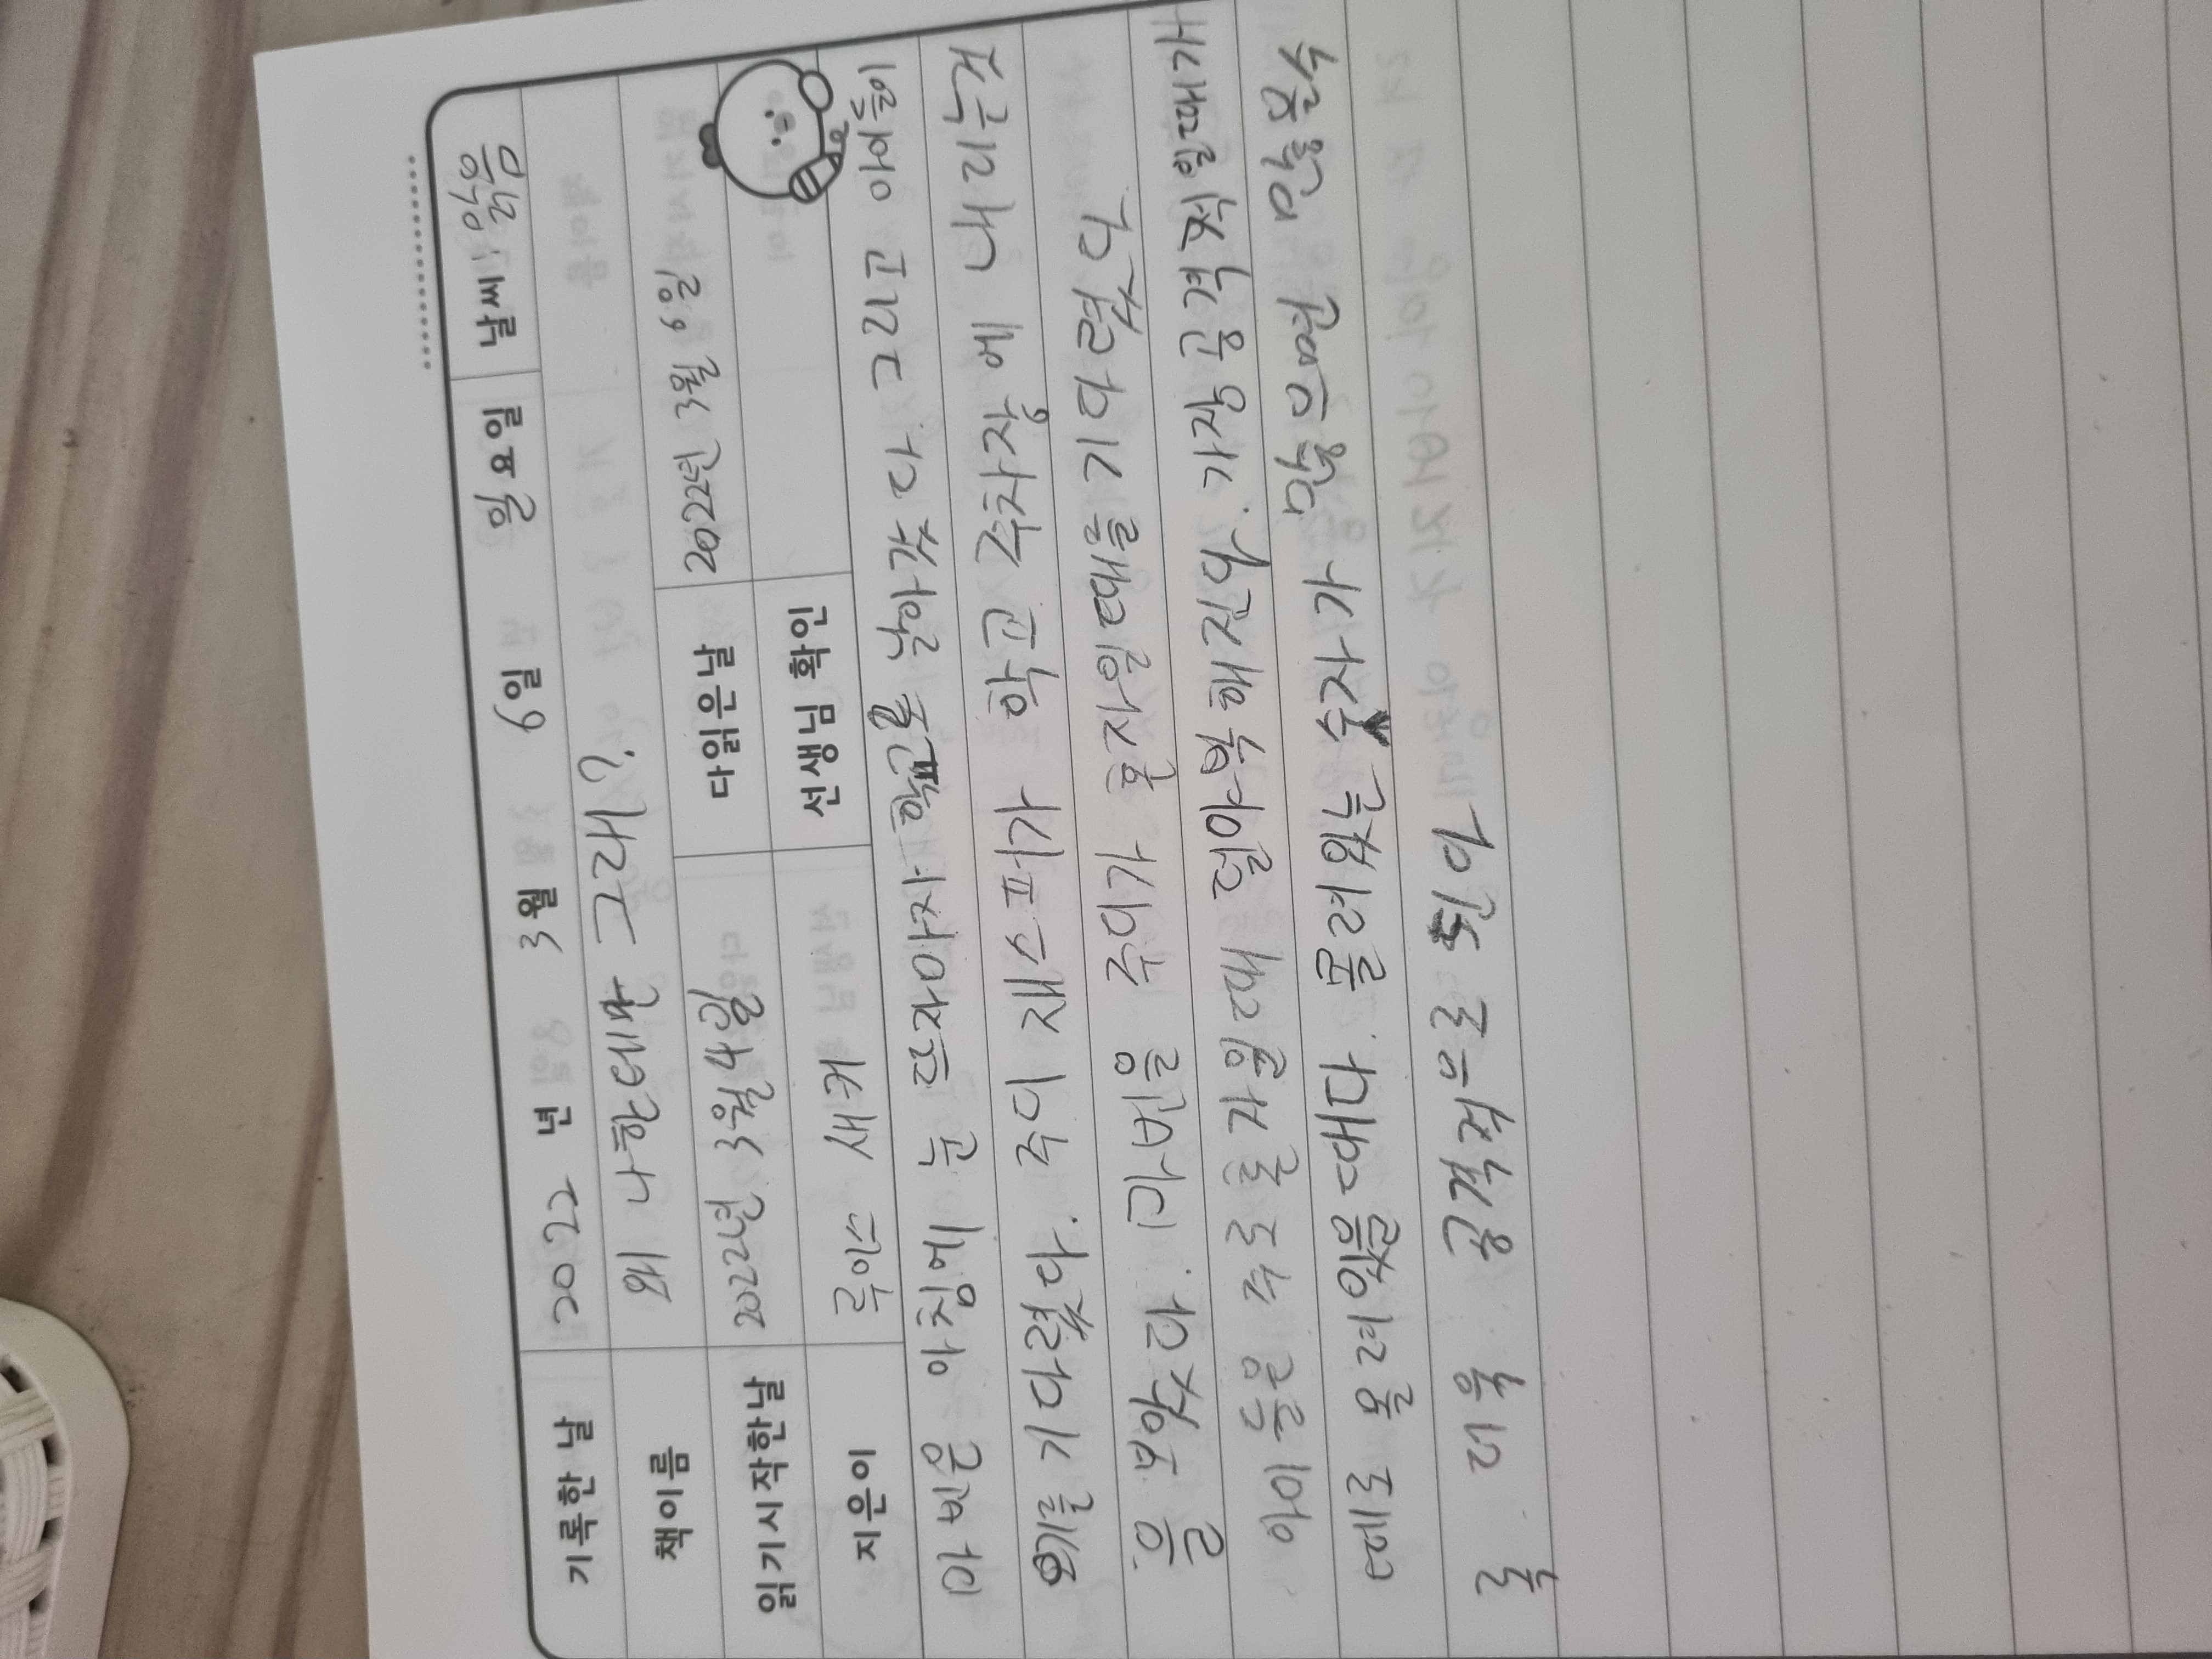 기록한 날 2022 년 3월 6일 일요일 날씨: 맑음
책이름 왜 나한테만 그래?
읽기시작한날 2022년 3월 4일 다읽은날 2022년 3월 6일
지은이 루이스 새커 선생님 확인
마빈은 아침에 눈 뜨자마자 학교로 날아갔다. 그리고 아이들이
오기를 기다렸다. 주디 재스퍼가 학교 주차장에 내리는것
을 보았다. 마빈을 주디가 혼자일때를 기다렸다
아이들은 주로 혼자일때 덜야박해진다. 가장 공격적일때가
떼로 몰려있을때다. 몰려있는 숫자가 많으면 많을수
록 더욱 공격적으로 된다